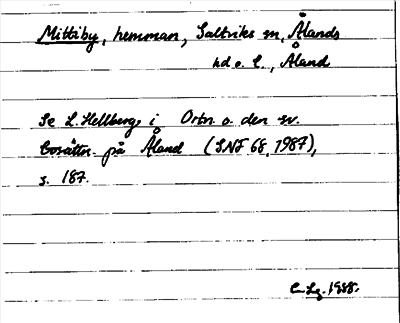 Mittiby, hemman, Saltviks sn, Ålands
hd o. l., Åland
Se L. Hellberg i Ortn. o. den sv.
bosättn. på Åland (SNF 68, 1987),
s. 187.
1988.